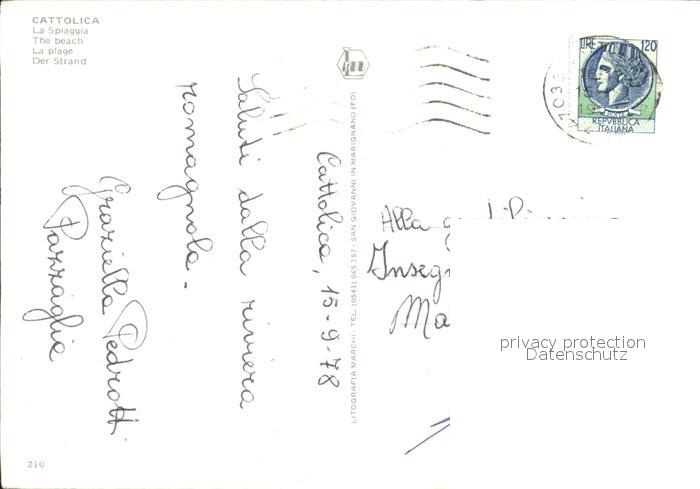 CATTOLICA
La Spiaggia
The beach
La plage
Der Strand
Cattolica, 15-9-78
Saluti dalla riviera
romagnola.
Graziella Pedrotti
Pazzaglia
LITOGRAFIA MARCHI - TEL. (0541) 965 157 - SAN GIOVANNI IN MARIGNANO (FO)
LIRE 120
POSTE
REPVBBLICA
ITALIANA
Alla
privacy protection
Datenschutz
210